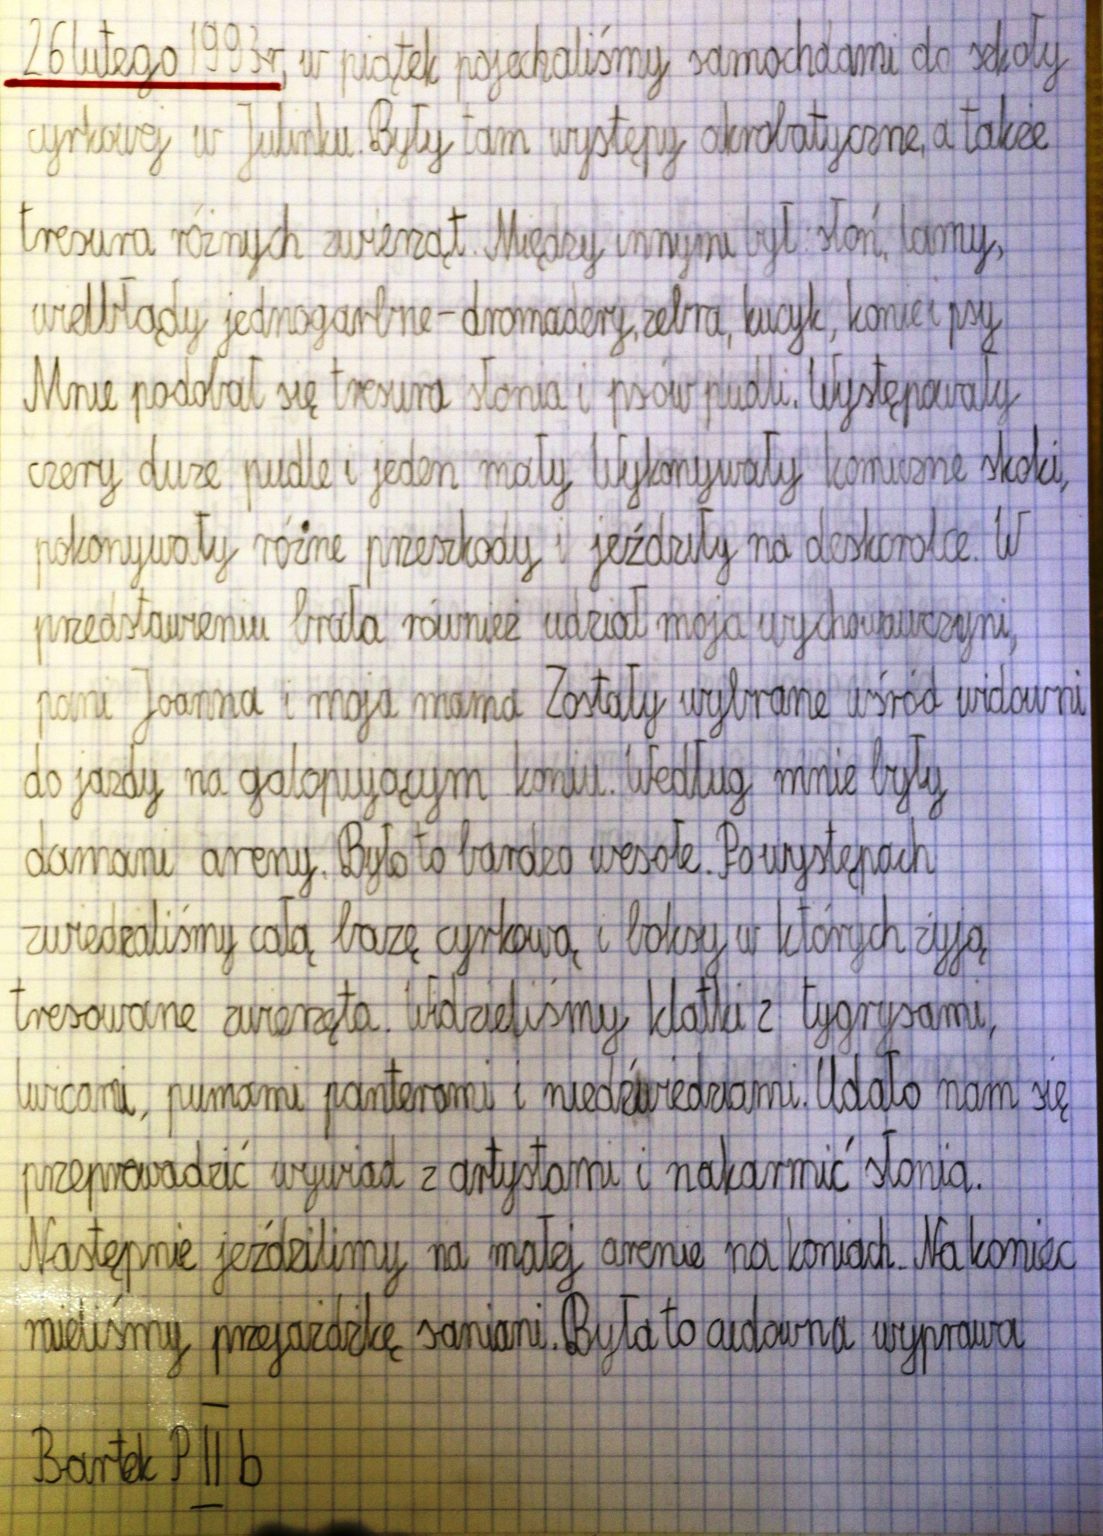 26 lutego 1993r, w piątek pojechaliśmy samochdami do szkoły
cyrkowej w Julinku. Były tam występy akrobatyczne, a także
tresura różnych zwierząt. Między innymi był słoń, lamy,
wielbłądy jednogarbne-dromadery, zebra, kucyk, konie i psy
Mnie podobał się tresura słonia i psów pudli. Występowały
czery duże pudle i jeden mały Wykonywały komiczne skoki,
pokonywały różne przeszkody i jeździły na deskorolce. W
przedstawieniu brała również udział moja wychowawczyni,
pani Joanna i moja mama Zostały wybrane wśród widowni
do jazdy na galopującym koniu. Według mnie były
damami areny. Było to bardzo wesołe. Po występach
zwiedzaliśmy całą bazę cyrkową i boksy w których żyją
tresowane zwierzęta. Widzieliśmy klatki z tygrysami,
lwicami, pumami panterami i niedźwiedziami. Udało nam się
przeprowadzić wywiad z artystami i nakarmić słonia.
Następnie jeździlimy na małej arenie na koniach. Na koniec
mieliśmy przejażdżkę saniami. Była to cudowna wyprawa
Bartek P II b